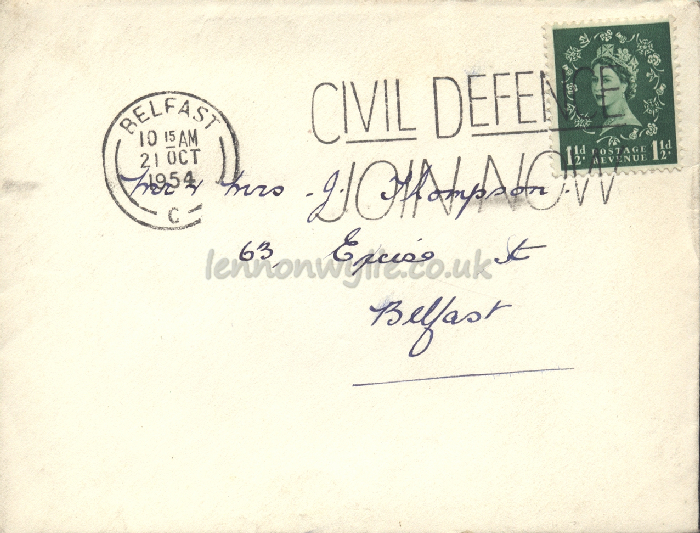 BELFAST
10 15 AM
21 OCT
1954
C
CIVIL DEFENCE
JOIN NOW
1½d. POSTAGE REVENUE 1½d.
Mr & Mrs J. Thompson.
63 St
Belfast
lennonwylie.co.uk